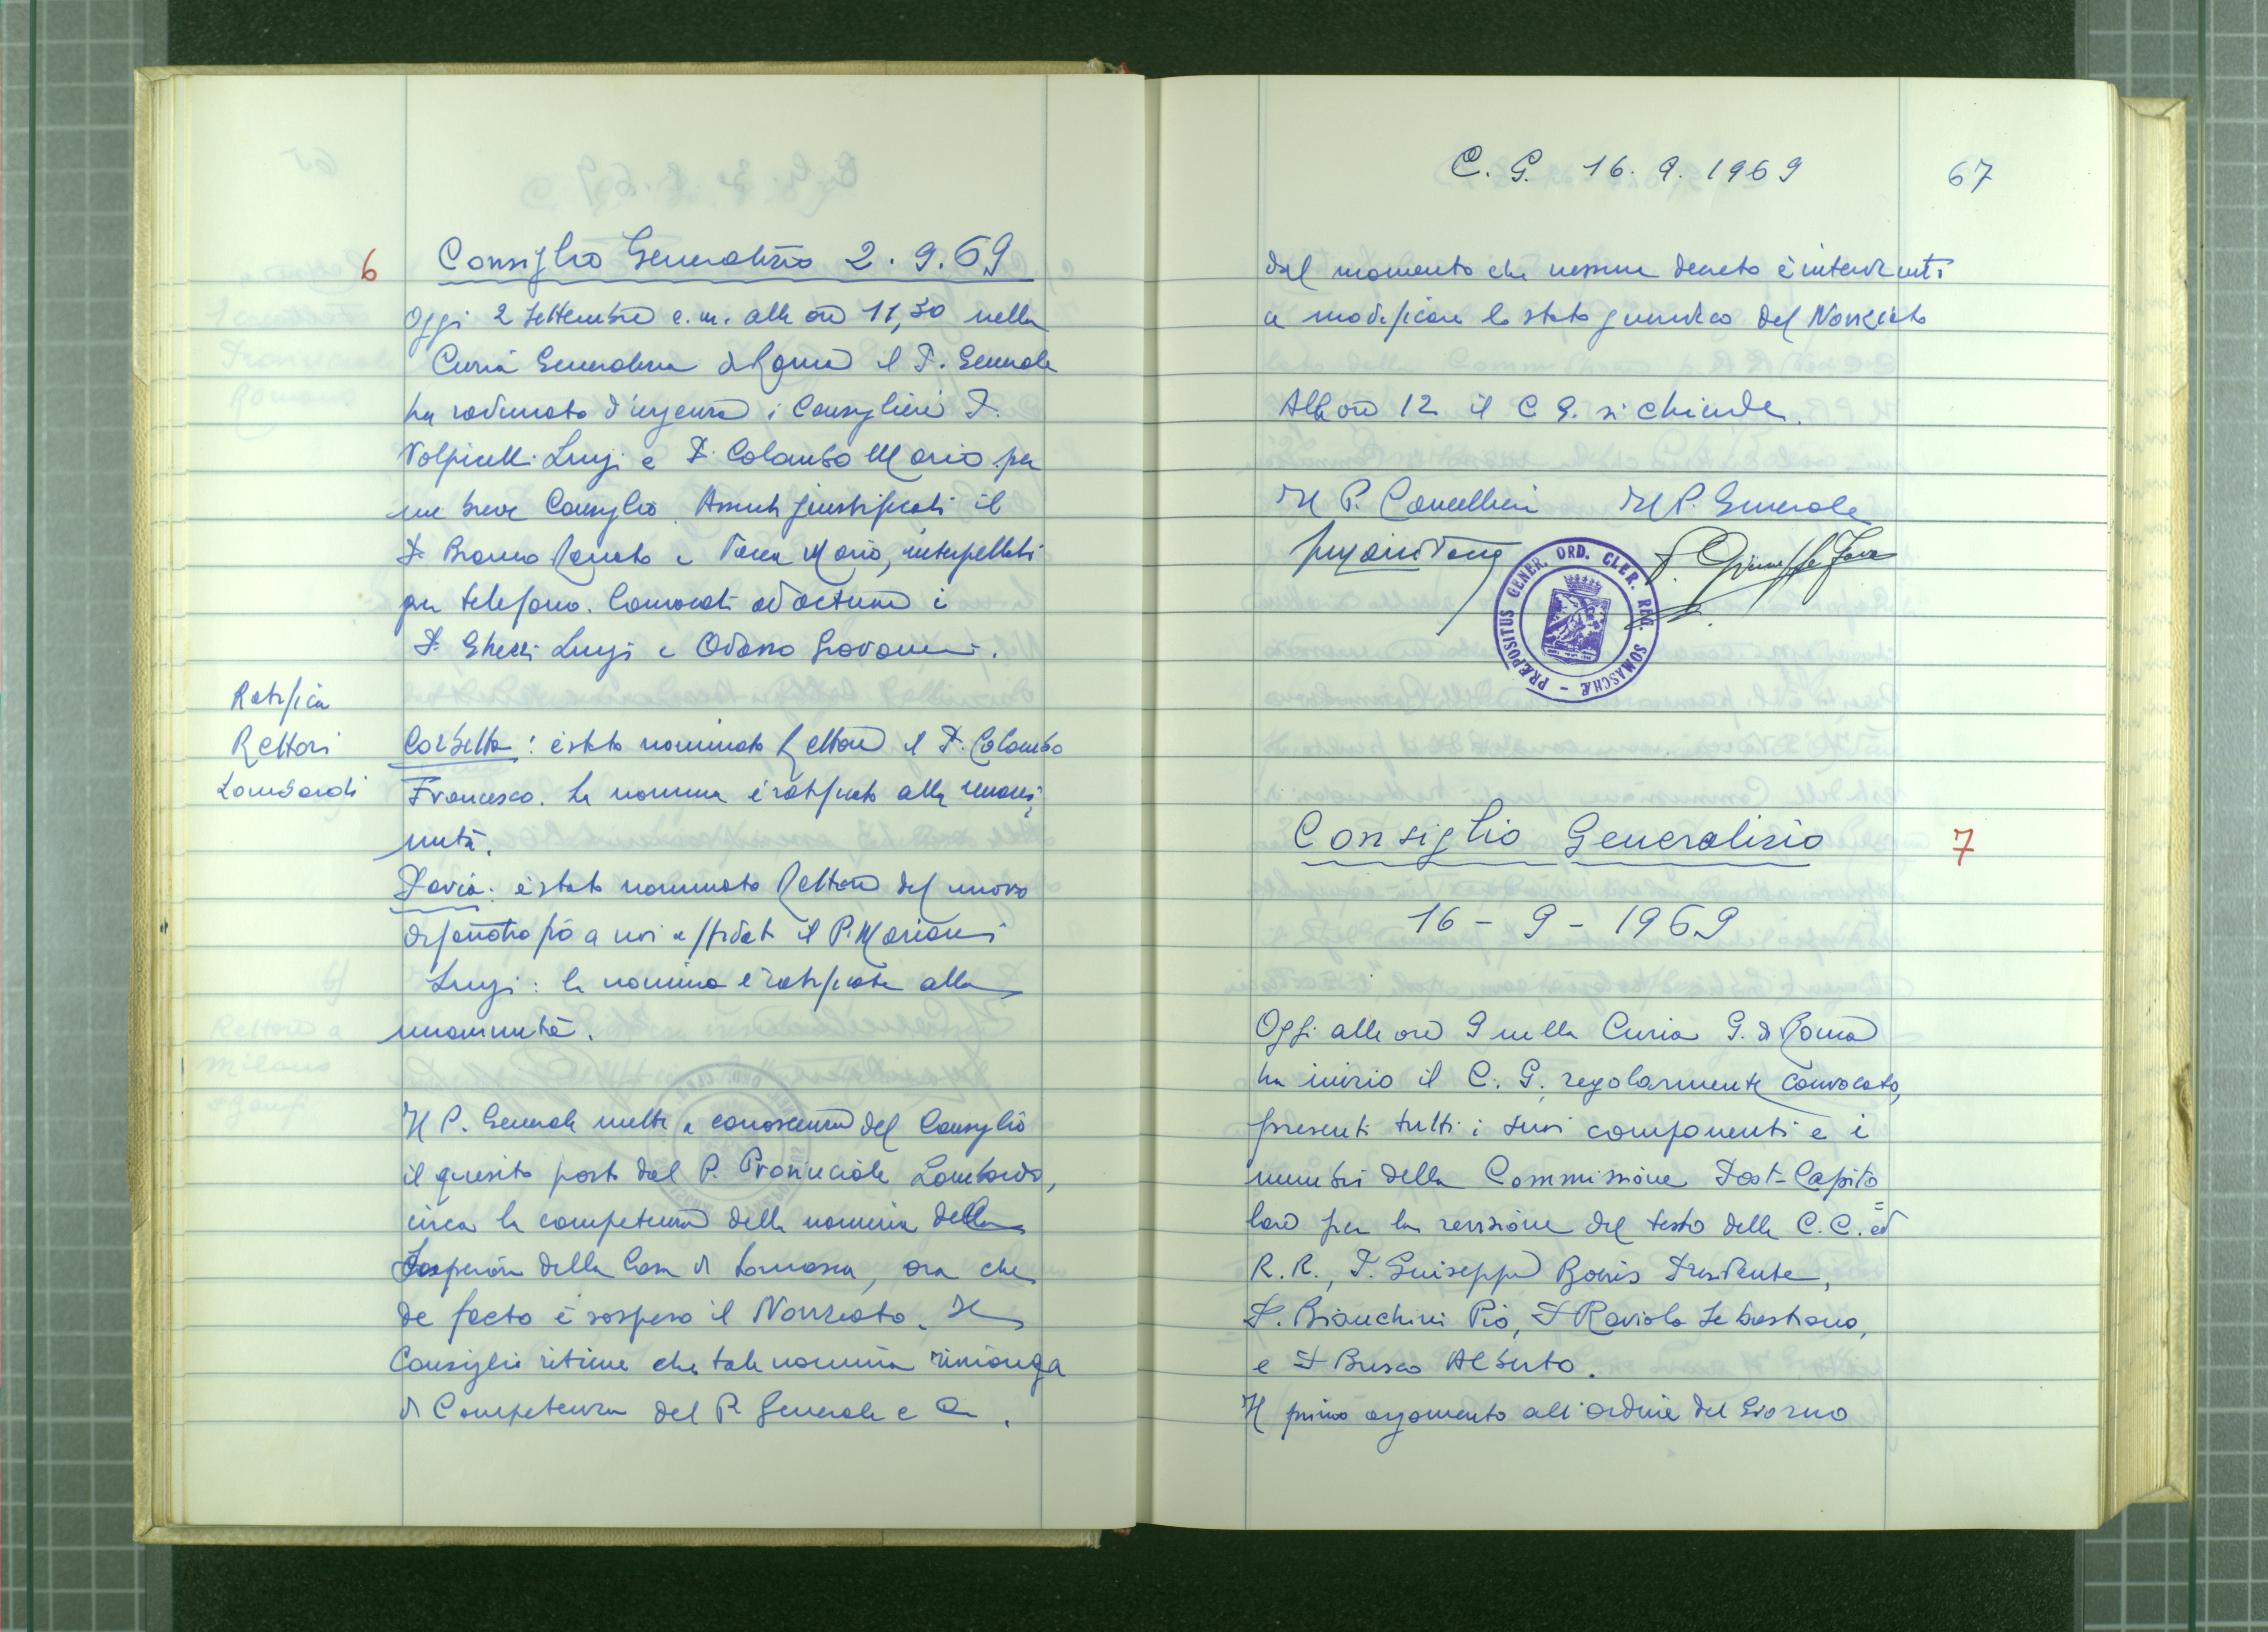 6
Consiglio Generalizio 2.9.69
Oggi 2 Settembre c.m. alle ore 11,30 nella
Curia Generalizia di Roma il P. Generale
ha radunato d'urgenza i Consiglieri P.
Volpicelli Luigi e P. Colombo Mario per
un breve Consiglio. Assenti giustificati il
P. Bianco Renato e Vacca Mario, interpellati
per telefono. Convocati ad actum i
P. Ghezzi Luigi e Odasso Giovanni.
Ratifica
Rettori
Lombardi
Corbetta: è stato nominato Rettore il P. Colombo
Francesco. La nomina è ratificata alla unani
mità.
Pavia: è stato nominato Rettore del nuovo
orfanotrofio a noi affidato il P. Mariani
Luigi: la nomina è ratificata alla
unanimità.
Il P. Generale mette a conoscenza del Consiglio
il quesito posto dal P. Provinciale Lombardo,
circa la competenza della nomina della
Superiore della Casa di Somasca, ora che
de facto è sospeso il Noviziato. Il
Consiglio ritiene che tale nomina rimanga
di Competenza del P. Generale e C.
C. G. 16.9.1969
67
dal momento che nessun decreto è intervenuto
a modificare lo stato giuridico del Noviziato
Alle ore 12 il C G. si chiude.
Il P. Cancelliere Il P. Generale
PRÆPOSITUS GENER. ORD. CLER. REG. SOMASCHÆ
Consiglio Generalizio
7
16 - 9 - 1969
Oggi alle ore 9 nella Curia G. di Roma
ha inizio il C. G. regolarmente convocato,
presenti tutti i suoi componenti e i
membri della Commissione Post-Capito=
lare per la revisione del testo delle C.C. ed
R.R., P. Giuseppe Boeris Presidente,
P. Bianchini Pio, P Raviolo Sebastiano,
e P Busco Alberto.
Il primo argomento all'ordine del Giorno